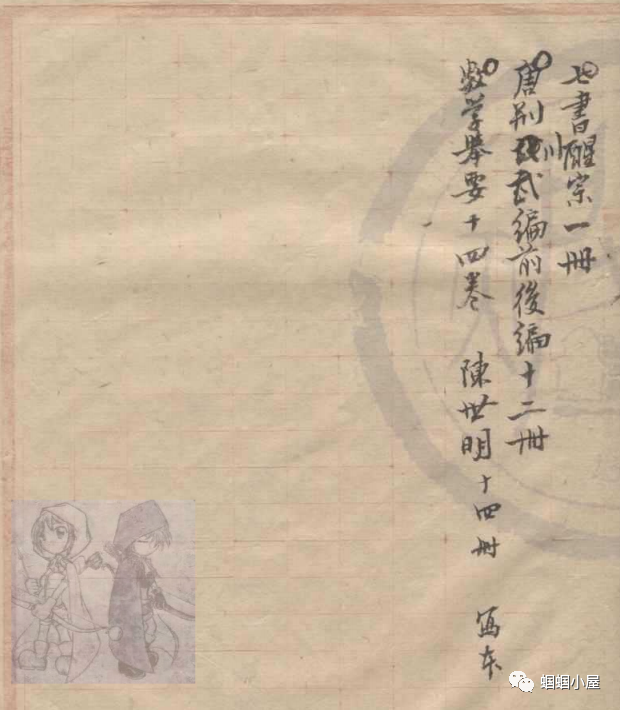 七書醒宗一冊
唐荆川武編前後編十二冊
數学舉要十四卷 陳世明十四冊 写本
蝈蝈小屋